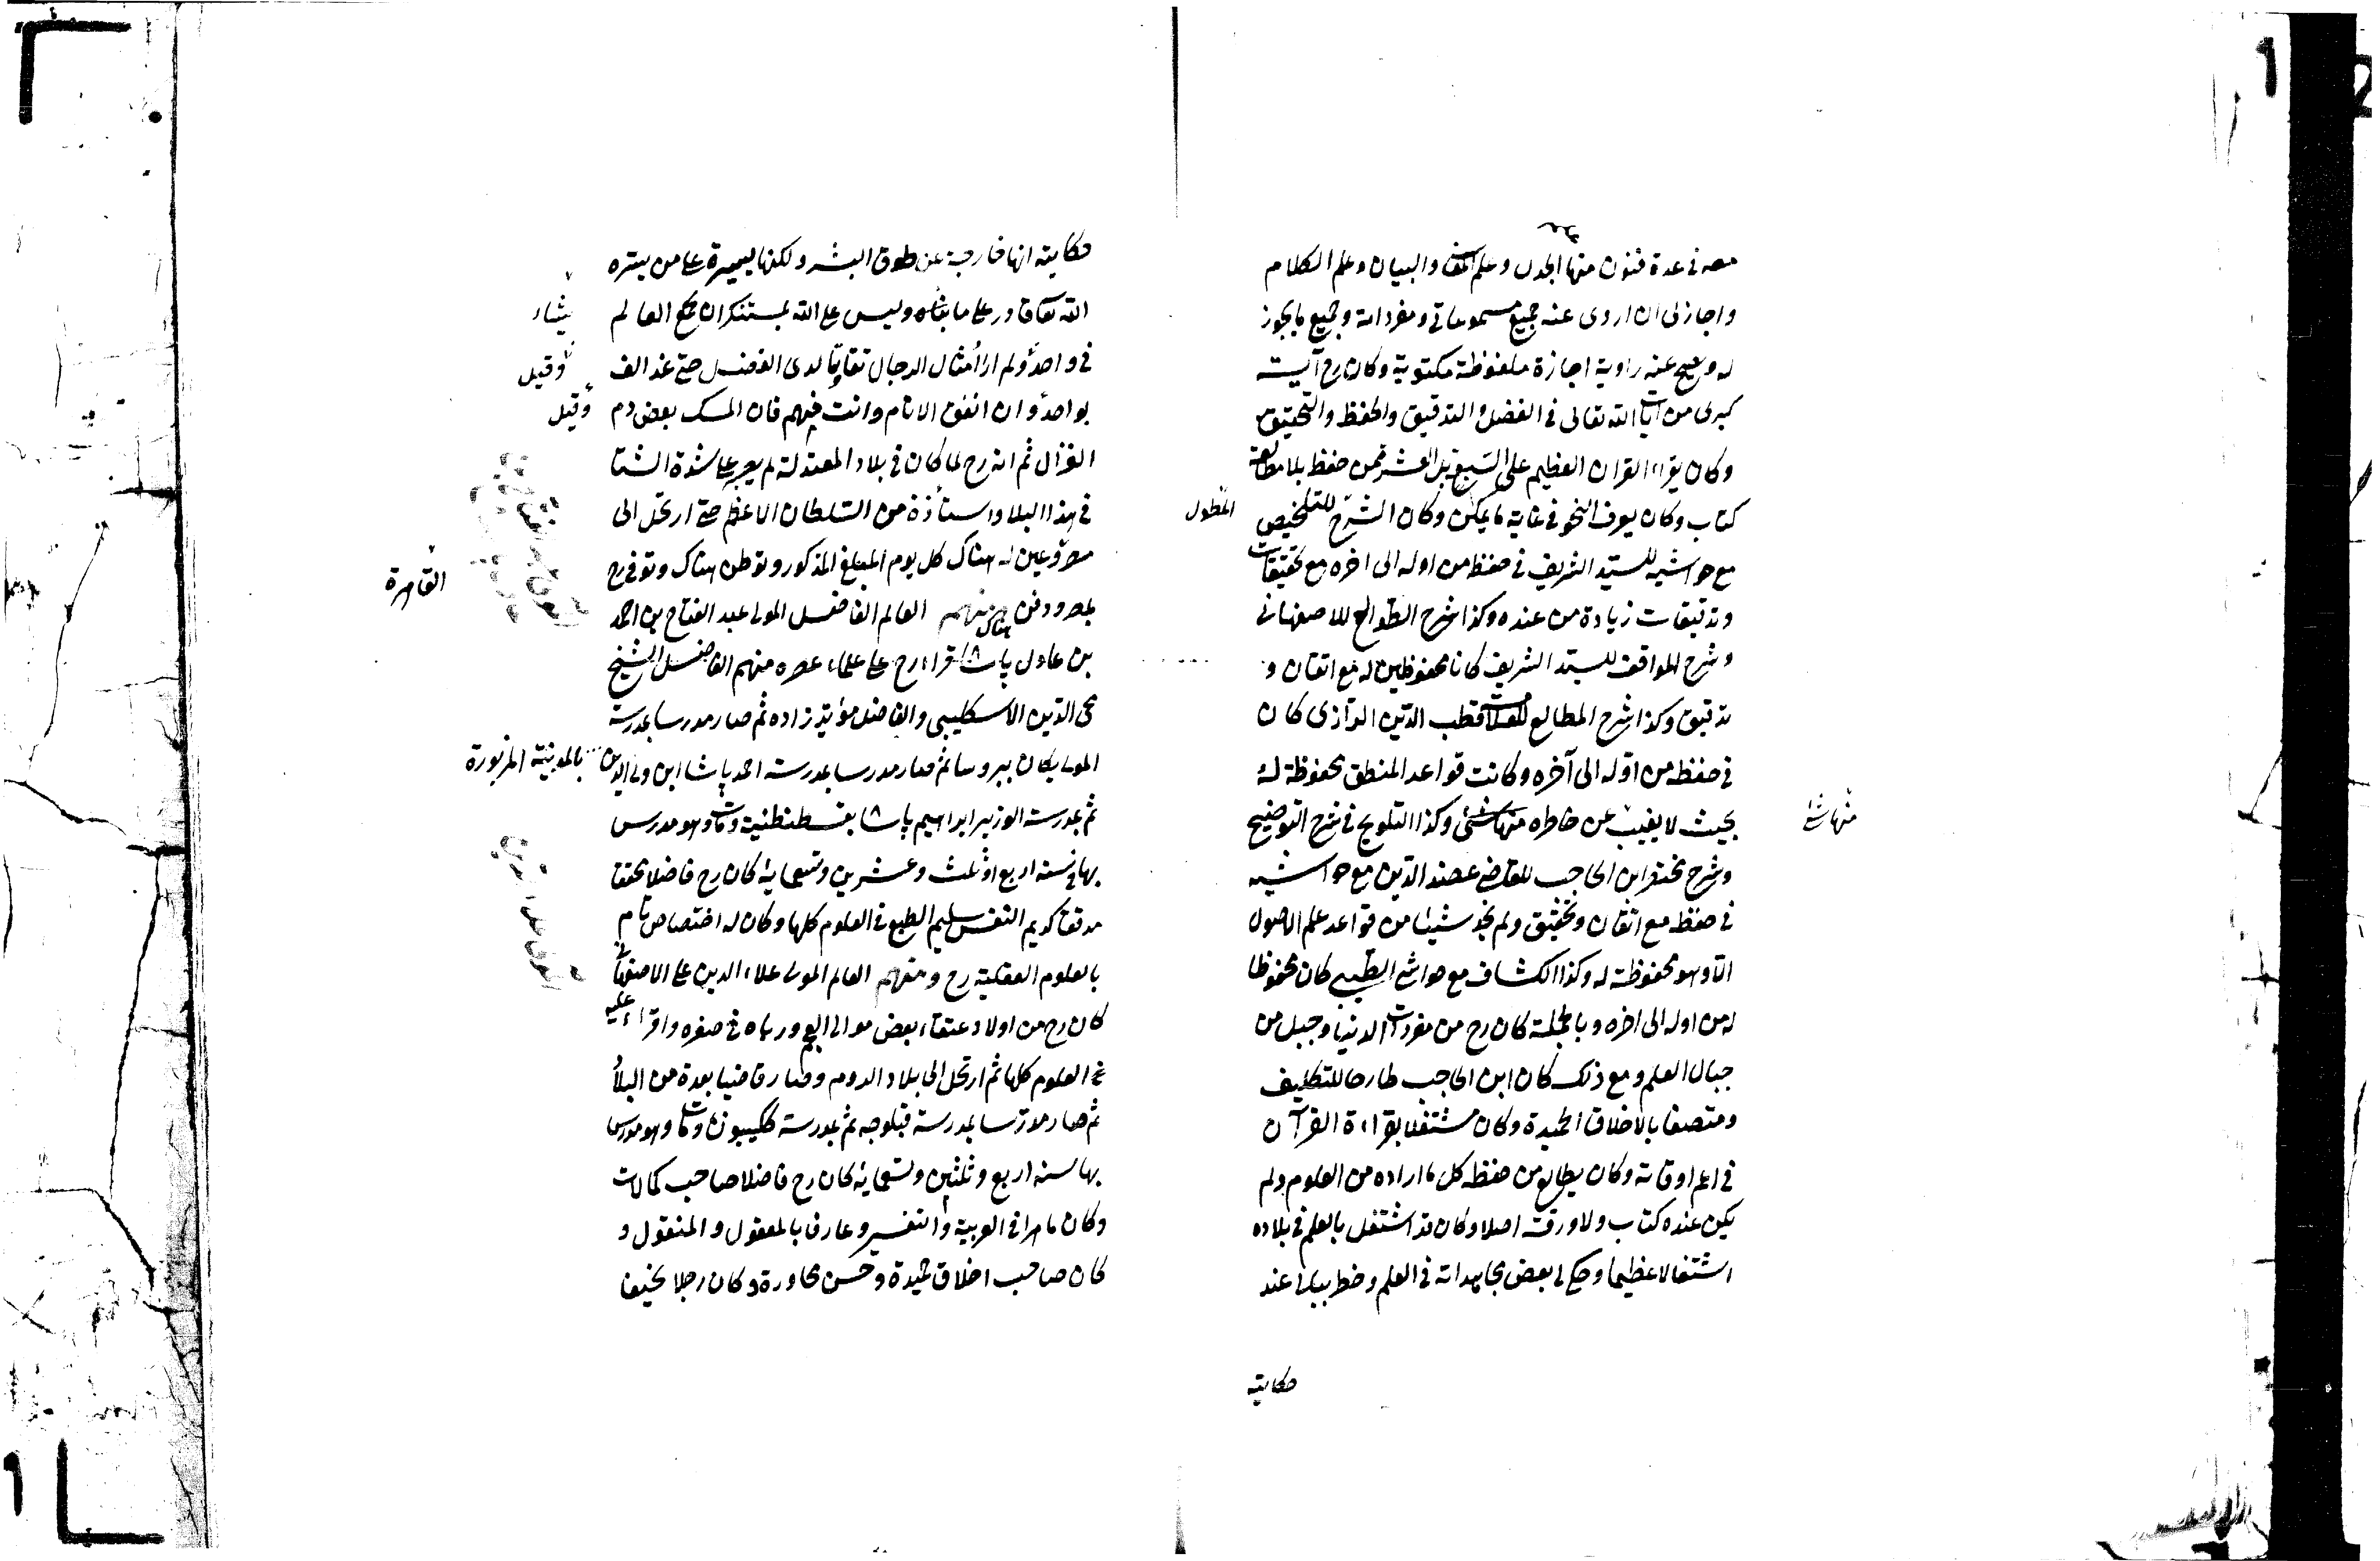 معه في عدة فنون منها الجدل وعلم والبيان وعلم الكلام
واجاز لي ان اروى عنه جميع مسموعاتي ومفرداته وجميع ما يجوز
له ويصح عنه راوية اجازة ملفوظة مكتوبة وكان رح آيت
كبرى من آيات الله تعالى في الفضل والتدقيق والحفظ والتحقيق
وكان يقراء القران العظيم على السبع بل العشر من حفظ بلا مطالعة
كتاب وكان يعرف النحو في غاية ما يمكن وكان الشرح للتلخيص
المطول
مع حواشيه للسيد الشريف في حفظ من اوله الى اخره مع تحقيقات
وتدقيقات زيادة من عنده وكذا شرح الطوالع للاصفهاني
وشرح المواقف للسيد الشريف كانا محفوظين له مع اتقان و
تدقيق وكذا شرح المطالع للعلامة قطب الدين الرازى كان
في حفظ من اوله الى آخره وكانت قواعد المنطق محفوظة له
بحيث لا يغيب عن خاطره منها شئ وكذا التلويح في شرح التوضيح
منها شئ
وشرح مختصر ابن الحاجب للقاضي عضد الدين مع حواشيه
في حفظ مع اتقان وتحقيق ولم نجد شيئا من قواعد علم الاصول
الا وهو محفوظة له وكذا الكشاف مع حواشي الطيبي كان محفوظا
له من اوله الى اخره وبالجملة كان رح من مفردات الدنيا وجبل من
جبال العلم ومع ذلك كان ابن الحاجب طارحا للتكليف
ومتصفا بالاخلاق الحميدة وكان مشتغلا بقراءة القرآن
في اعم اوقاته وكان يطالع من حفظه كل ما اراده من العلوم ولم
يكن عنده كتاب ولا ورقة اصلا وكان قد اشتغل بالعلم في بلاده
اشتغالا عظيما وحكى لى بعض مجاهداته في العلم وخطر ببالى عند
حكايته
حكايته انها خارجة عن طوق البشر ولكنها يسيرة على من يسره
الله تعالى قادر على ما يشاء وليس على الله بمستنكر ان يجمع العالم
يشاء
في واحد ولم ار امثال الرجال تفاوتا لدى الفضل حتى عد الف
وقيل
بواحد وان انفق الانام وانت فيهم فان المسك بعض دم
وقيل
الغزال ثم انه رح لما كان في بلاد المعتدلة لم يصبر على شدة الشتا
في هذا البلاد واستأذن من السلطان الاعظم حتى ارتحل الى
مصر وعين له هناك كل يوم المبلغ المذكور وتوطن هناك وتوفي رح
القاهرة
بمصر ودفن هناك ومنهم العالم الفاضل المولى عبد الفتاح بن احمد
بن عادل پاشا قراء رح على علماء عصره منهم الفاضل الشيخ
محي الدين الاسكليبي والفاضل مؤيد زاده ثم صار مدرسا بمدرسة
المولى يكان ببروسا ثم صار مدرسا بمدرسة احمد پاشا ابن ولي الدين
بالمدينة المزبورة
ثم بمدرسة الوزير ابراهيم پاشا بقسطنطنية ومات وهو مدرس
بها في سنة اربع او ثلث وعشرين وتسعماية كان رح فاضلا محققا
مدققا كريم النفس سليم الطبع في العلوم كلها وكان له اختصاص تام
بالعلوم العقلية رح ومنهم العالم المولى علاء الدين على الاصفهاني
كان رح من اولاد عتقاء بعض موالى العجم ورباه في صغره واقراء عليه
العلوم كلها ثم ارتحل الى بلاد الروم وصار قاضيا بعدة من البلاد
ثم صار مدرسا بمدرسة قبلوجه ثم بمدرسة ككيبوزه ومات وهو مدرس
بها سنة اربع وثلثين وتسعماية كان رح فاضلا صاحب كمالات
وكان ماهرا في العربية والتفسير وعارفا بالمعقول والمنقول و
كان صاحب اخلاق حميدة وحسن محاورة وكان رجلا نحيفا